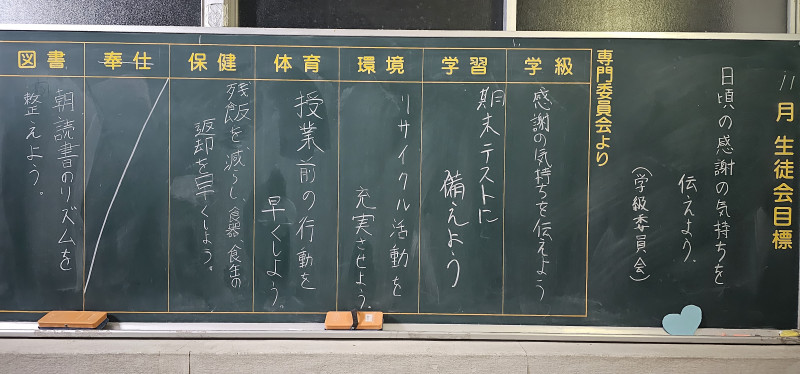 11月生徒会目標
日頃の感謝の気持ちを
伝えよう.
(学級委員会)
専門委員会より
学級
感謝の気持ちを伝えよう
学習
期末テストに
備えよう
環境
リサイクル活動を
充実させよう.
体育
授業前の行動を
早くしよう。
保健
残飯を減らし、食器、食缶の
返却を早くしよう。
奉仕
図書
朝読書のリズムを
整えよう。